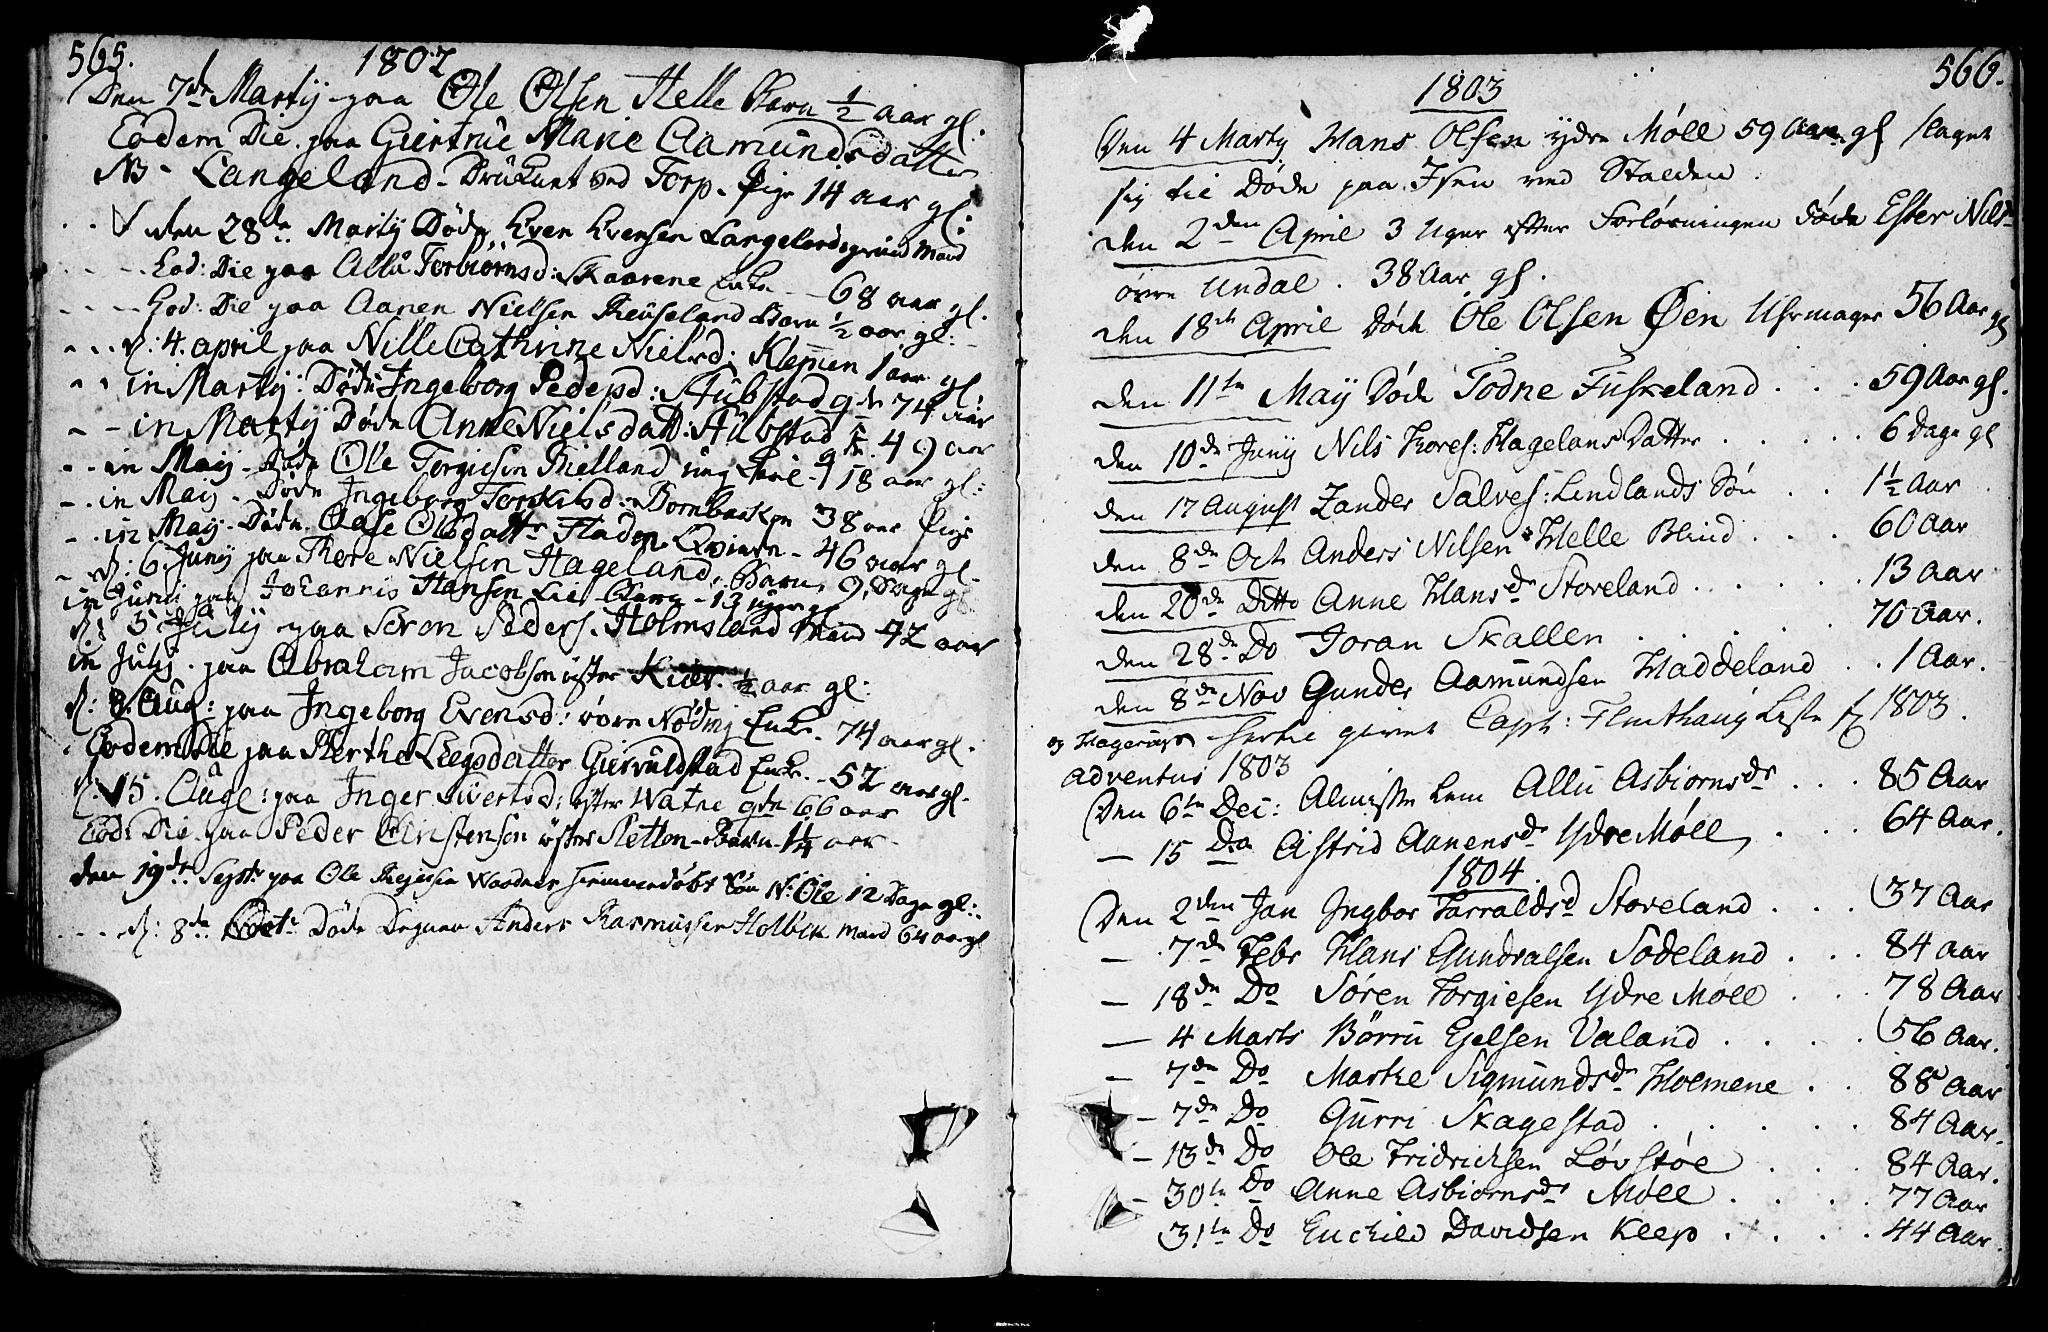 565.
1802
Den 7de Martij paa Ole Olsen Helle Barn ½ aar gl:
Eodem Die paa Giertrue Marie Aamundsdatter
NB - Langeland - Druknet ved Torp - Pige 14 aar gl:
den 28de Martij Døde Even Evensen Langeland grund Mand
Eod: Die paa Allu Torbiørnsd: Skaarene Enke - 68 aar gl.
Eod: Die paa Aanen Nielsen Reuseland Barn ½ aar gl:
d: 4. april paa Nille Cathrine Nielsd: Klepien 1 aar gl:
in Martij: Døde Ingeborg Pedersd: Stubstad gde 74 aar
in Martij Døde Anne Nielsdatt: Stubstad 49 aar
in Maij - Døde Ole Tergiesen Bielland ung Karl - 18 aar gl:
in Maij - Døde Ingeborg Torkildsd: Bornbakken 38 aar Pige
in Maij - Døde Aase Olsdatter Fladen Qvinde - 46 aar gl.
d: 6. Junij paa Thore Nielsen Hageland, Barn, 9, Dage gl.
in Junii paa Johannis Hansen Lie Barn - 13 uger gl
d: 3. Julij paa Soren Peders. Holmsland Mand 42 aar
in Julij. paa Abraham Jacobsen yster Kier ½ aar gl:
d: 8. Aug: paa Ingeborg Evensd: øvre Nøding Enke. 74 aar gl.
Eodem Die paa Berthe Leegsdatter Gierruldstad Enke. - 52 aar gl.
d. 15. Aug: paa Inger Sivertsd: øster Watne gde 66 aar
Eod: Die paa Peder Christensen øster Sletten - Barn - 1¼ aar
den 19de Sept. paa Ole Reiersen Waadnes hiemmedøbt Søn N: Ole 12 Dage gl:
d: 8de Octr. Døde Degnen Anders Rasmussen Holbek Mand 64 aar gl
566.
1803
Den 4 Marty Hans Olsen ydre Møll 59 Aar gl slaget
sig til Døde paa Isen ved Stalden.
den 2den April 3 Uger efter Forløsningen døde Ester Nilsd
øvre Undal. 38 Aar gl.
den 18de April Døde Ole Olsen Øen Uhrmager 56 Aar gl
den 11te Maij Døde Todne Fuskeland . . . 59 Aar gl.
den 10de Junij Nils Tores: Hagelands Datter . . . 6 Dage gl
den 17 August Zander Salves: Lindlands Søn . . 1½ Aar
den 8de Oct Anders Nilsen Helle Blind . . . 60 Aar
den 20de Ditto Anne Hansd Storeland . . . 13 Aar
den 28de Do Joran Skallen . . . 70 Aar.
den 8de Nov Gunder Aamundsen Haddeland . . 1 Aar.
givet Capt: Flinthaug Liste 1803.
Adventus 1803
Den 6te Dec: Almisse Lem Allu Asbiornsdr . . 85 Aar
— 15 Do Astrid Aanensd Ydre Møll, . . . 64 Aar.
1804.
Den 2den Jan Ingbor Tarraldsd Storeland . . . 37 Aar
— 7de Febr Hans Gundvalsen Sodeland . . . 84 Aar
— 18de Do Søren Torgiesen Ydre Møll . . . 78 Aar
— 4 Marts Børru Ejelsen Valand . . . . 56 Aar.
— 7de Do Marthe Sigmundsdr Hvemene . . 88 Aar
— 7de Do Gurri Skagestad . . . . . 84 Aar.
— 13de Do Ole Fridrichsen Løvstøe . . . 84 Aar.
— 30te Do Anne Asbiornsdr Møll . . . . 77 Aar
31te Do Enckild Davidsen Kleep . . . . 44 Aar.